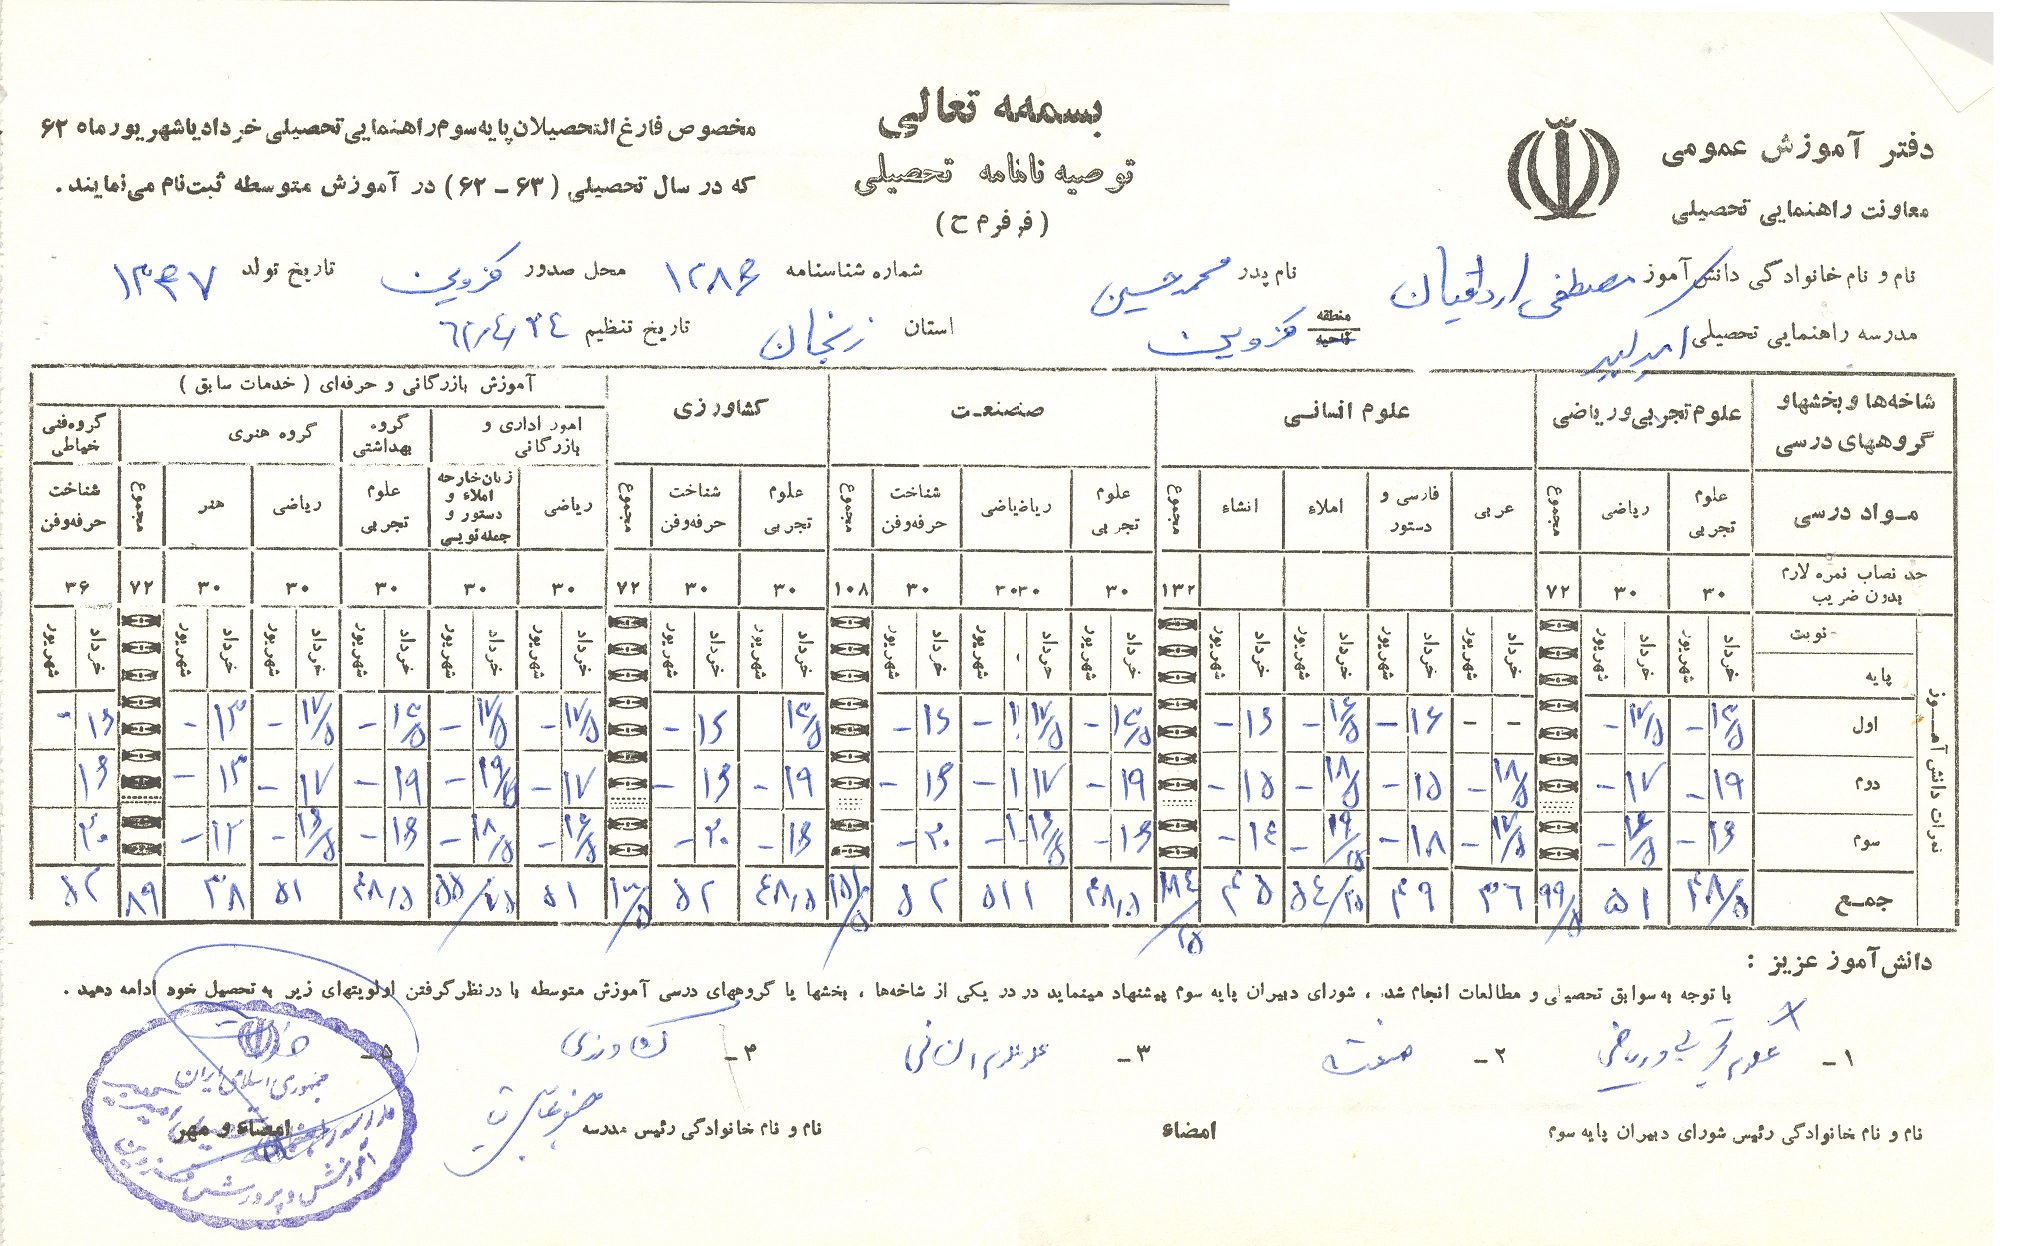 بسمه تعالی
توصیه نامه تحصیلی
(فرم ح)
دفتر آموزش عمومی
معاونت راهنمایی تحصیلی
مخصوص فارغ التحصیلان پایه سوم راهنمایی تحصیلی خرداد یا شهریور ماه ۶۲
که در سال تحصیلی (۶۳ - ۶۲) در آموزش متوسطه ثبت نام می نمایند.
نام و نام خانوادگی دانش آموز مصطفی نام پدر محمد حسین شماره شناسنامه ۱۲۸۶ محل صدور قزوین تاریخ تولد ۱۳۴۷
مدرسه راهنمایی تحصیلی امیرکبیر منطقه ناحیه قزوین استان زنجان تاریخ تنظیم ۶۲/۴/۲۴
شاخه‌ها و بخشها و گروههای درسی علوم تجربی و ریاضی علوم انسانی صنعت کشاورزی آموزش بازرگانی و حرفه‌ای (خدمات سابق)
امور اداری و بازرگانی گروه بهداشتی گروه هنری گروه فنی خیاطی
مواد درسی علوم تجربی ریاضی مجموع عربی فارسی و دستور املاء انشاء مجموع علوم تجربی ریاضی شناخت حرفه و فن مجموع علوم تجربی شناخت حرفه و فن مجموع ریاضی زبان خارجه املاء و دستور و جمله نویسی علوم تجربی ریاضی هنر مجموع شناخت حرفه و فن
حد نصاب نمره لازم بدون ضریب ۳۰ ۳۰ ۷۲ ۱۳۲ ۳۰ ۳۰ ۳۰ ۱۰۸ ۳۰ ۳۰ ۷۲ ۳۰ ۳۰ ۳۰ ۳۰ ۳۰ ۷۲ ۳۶
نوبت خرداد شهریور خرداد شهریور خرداد شهریور خرداد شهریور خرداد شهریور خرداد شهریور خرداد شهریور خرداد شهریور خرداد شهریور خرداد شهریور خرداد شهریور خرداد شهریور خرداد شهریور خرداد شهریور خرداد شهریور خرداد شهریور خرداد شهریور
پایه
نمرات دانش آموز
اول ۱۳/۵ - ۱۷/۵ - - - ۱۶ - ۱۶/۵ - ۱۶ - ۱۳/۵ - ۱۷/۵ - ۱۶ - ۱۳/۵ ۱۶ - ۱۷/۵ - ۱۷/۵ - ۱۳/۵ - ۱۷/۵ - ۱۳ - ۱۶ -
دوم ۱۹ - ۱۷ - ۱۸/۵ - ۱۵ - ۱۸/۵ - ۱۵ - ۱۹ - ۱۷ - ۱۶ - ۱۹ - ۱۶ - ۱۷ - ۱۹ - ۱۷ - ۱۳ - ۱۶
سوم ۱۶ - ۱۶/۵ - ۱۷/۵ - ۱۸ - ۱۴ - ۱۶ - ۱۶/۵ - ۲۰ - ۱۶ - ۲۰ - ۱۶/۵ - ۱۸/۵ - ۱۶ - ۱۶/۵ - ۱۲ - ۲۰
جمع ۴۸/۵ ۵۱ ۹۹/۵ ۳۶ ۴۹ ۵۴/۲۵ ۴۵ ۱۸۴/۲۵ ۴۸/۵ ۵۱ ۵۲ ۱۵۱/۵ ۴۸/۵ ۵۲ ۱۰۰/۵ ۵۱ ۴۸/۵ ۵۱ ۳۸ ۸۹ ۵۲
دانش آموز عزیز :
با توجه به سوابق تحصیلی و مطالعات انجام شده ، شورای دبیران پایه سوم پیشنهاد مینماید در یکی از شاخه‌ها ، بخشها یا گروههای درسی آموزش متوسطه با در نظر گرفتن اولویتهای زیر به تحصیل خود ادامه دهید .
۱- علوم تجربی و ریاضی ۲- صنعت ۳- علوم انسانی ۴- کشاورزی ۵- خدمات
نام و نام خانوادگی رئیس شورای دبیران پایه سوم امضاء نام و نام خانوادگی رئیس مدرسه امضاء و مهر
جمهوری اسلامی ایران
آموزش و پرورش قزوین